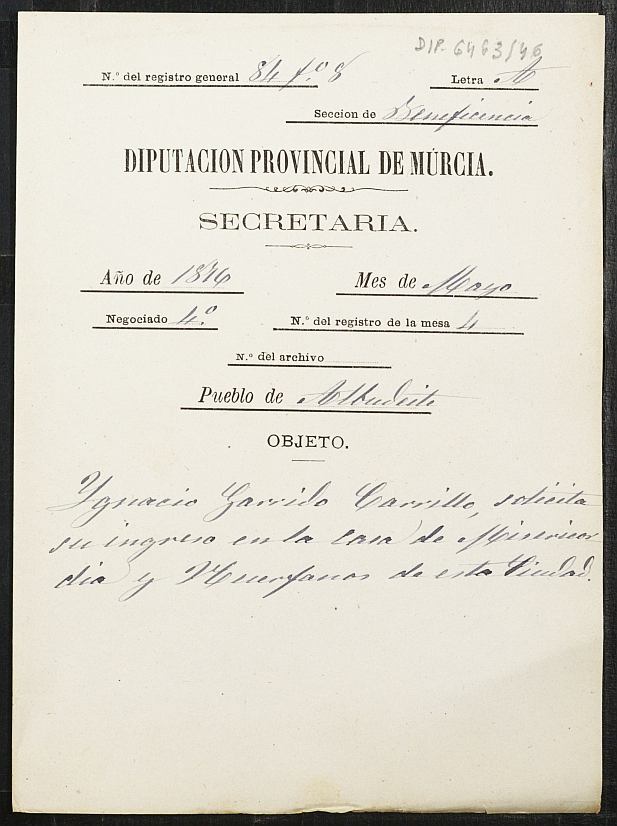 DIP. 6463/46
N.º del registro general 84 fº 8 Letra A
Seccion de Beneficencia
DIPUTACION PROVINCIAL DE MÚRCIA.
SECRETARIA.
Año de 1876 Mes de Mayo
Negociado 4.º N.º del registro de la mesa 4
N.º del archivo
Pueblo de Albudeite
OBJETO.
Ygnacio Garrido Carrillo, solicita
su ingreso en la Casa de Misericor
dia y Huerfanos de esta Ciudad.